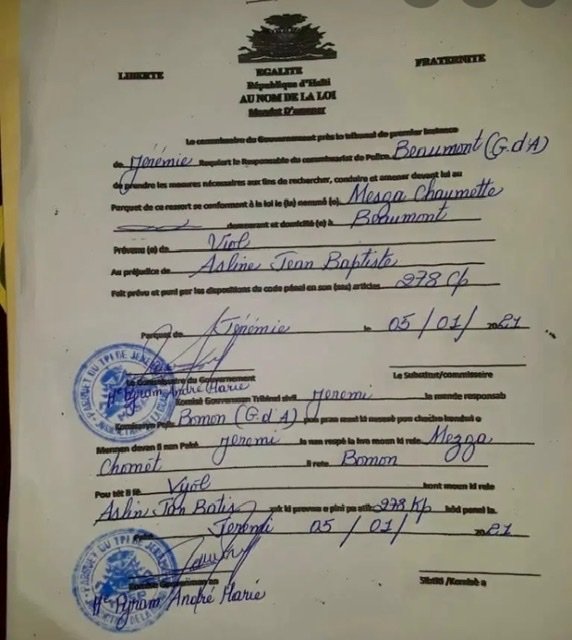 LIBERTE EGALITE FRATERNITE
République d'Haïti
AU NOM DE LA LOI
Mandat D'amener
Le commissaire du Gouvernement près le tribunal de premier instance
de Jérémie Requiert le Responsable du commissariat de Police Beaumont (G.d'A)
de prendre les mesures nécessaires aux fins de rechercher, conduire et amener devant lui au
Parquet de ce ressort se conformant à la loi le (la) nommé (e), Mesga Chaumette
demeurant et domicilié (e) à Beaumont
Prévenu (e) de Viol
Au préjudice de Asline Jean Baptiste
Fait prévu et puni par les dispositions du code pénal en son (ses) articles 278 Cp
Parquet de Jérémie le 05/01/2021
Le Commissaire du Gouvernement Le Substitut/commissaire
Me Pyram André Marie
Komisè Gouvènman Tribinal sivil Jeremi la mande responsab
Komisarya Polis Bomon (G.d'A) pou pran
Mennen devan li nan Pakè Jeremi la nan respè la lwa moun ki rele Mezga
Chomèt li rete Bomon
Pou tèt li fè Vyòl kont moun ki rele
Aslin Jan Batis sak ki prevwa e pini pa atik 278 Kp kòd penal la.
Jeremi 05/01/2021
Komisè Gouvènman an Sibiti/Komisè a
Me Pyram André Marie
PARQUET DU TPI DE JEREMIE